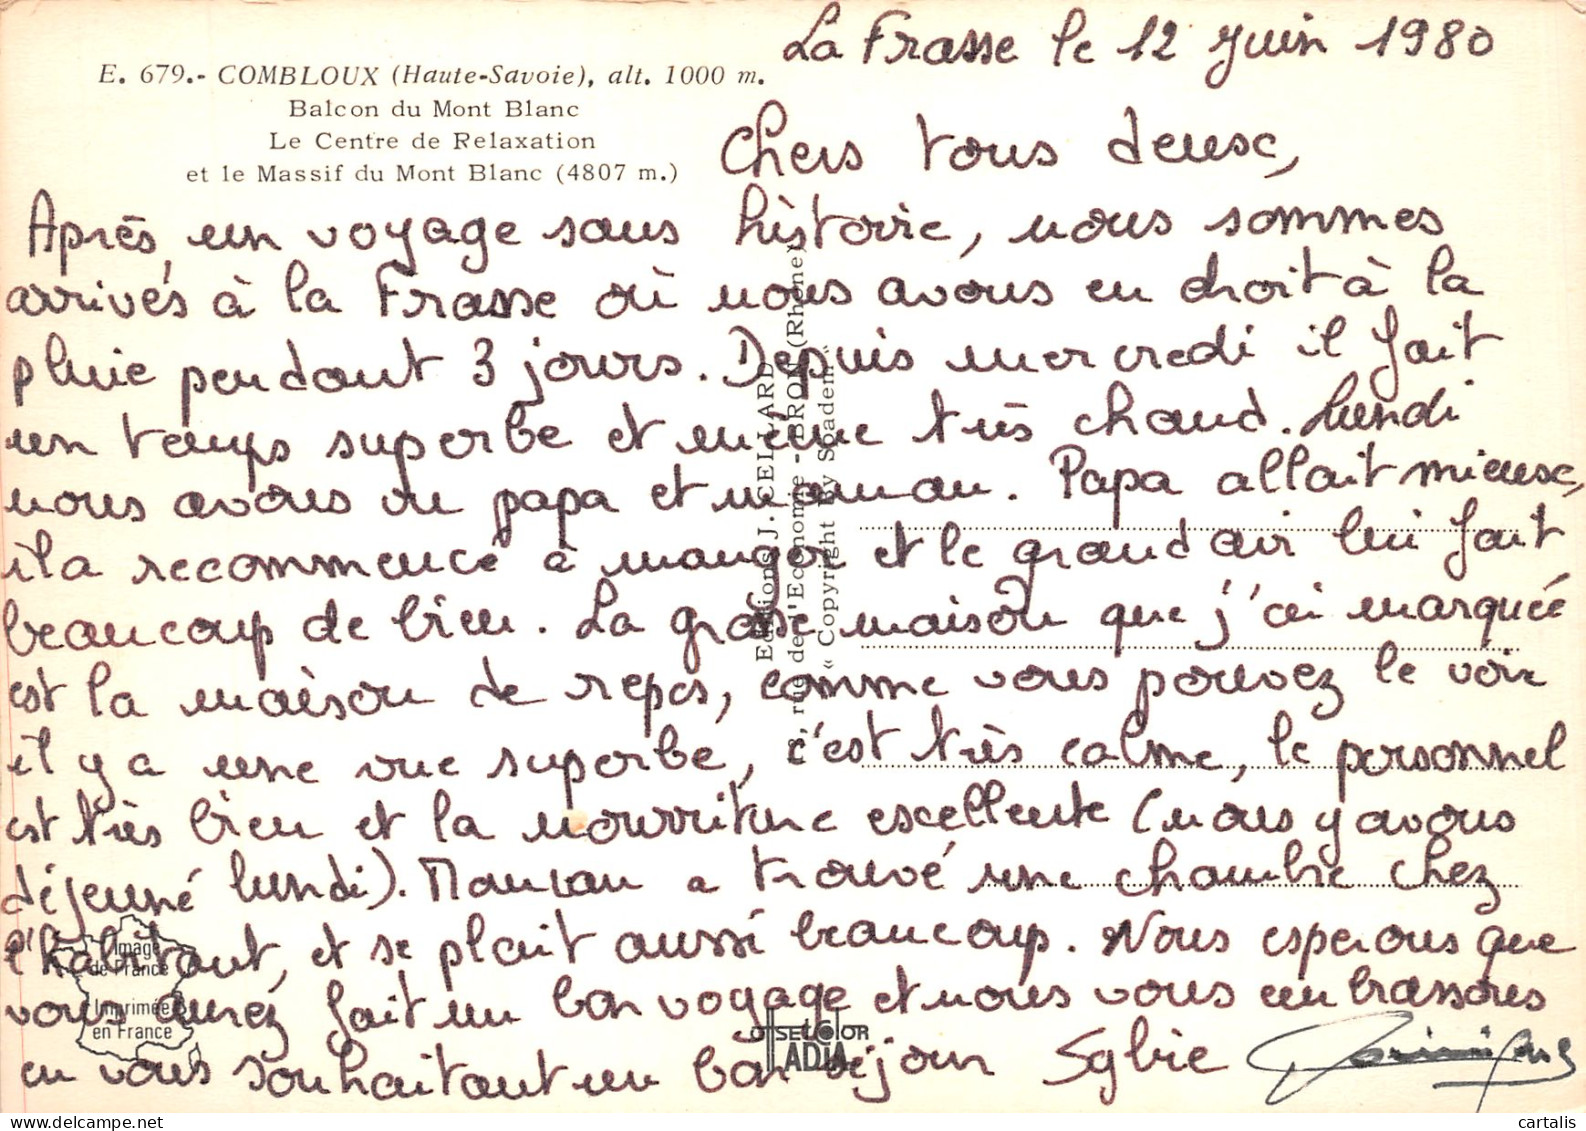 La Frasse le 12 Juin 1980
E. 679.- COMBLOUX (Haute-Savoie), alt. 1000 m.
Balcon du Mont Blanc
Le Centre de Relaxation
et le Massif du Mont Blanc (4807 m.)
Chers tous deux,
Après un voyage sans histoire, nous sommes
arrivés à la Frasse où nous avons eu droit à la
pluie pendant 3 jours. Depuis mercredi il fait
un temps superbe et même très chaud. Lundi
nous avons vu papa et maman. Papa allait mieux,
il a recommencé à manger et le grand air lui fait
beaucoup de bien. La grosse maison que j'ai marquée
est la maison de repos, comme vous pouvez le voir
il y a une vue superbe, c'est très calme, le personnel
est très bien et la nourriture excellente (nous y avons
déjeuné lundi). Maman a trouvé une chambre chez
l'habitant, et se plait aussi beaucoup. Nous esperons que
vous aurez fait un bon voyage et nous vous embrassons
en vous souhaitant un bon séjour Sylvie
Editions J. CELLARD
rue de l'Economie - BRON (Rhône)
« Copyright By Spadem »
Image
de France
Imprimée
en France
OFFSETCOLOR
ADIA
cartalis